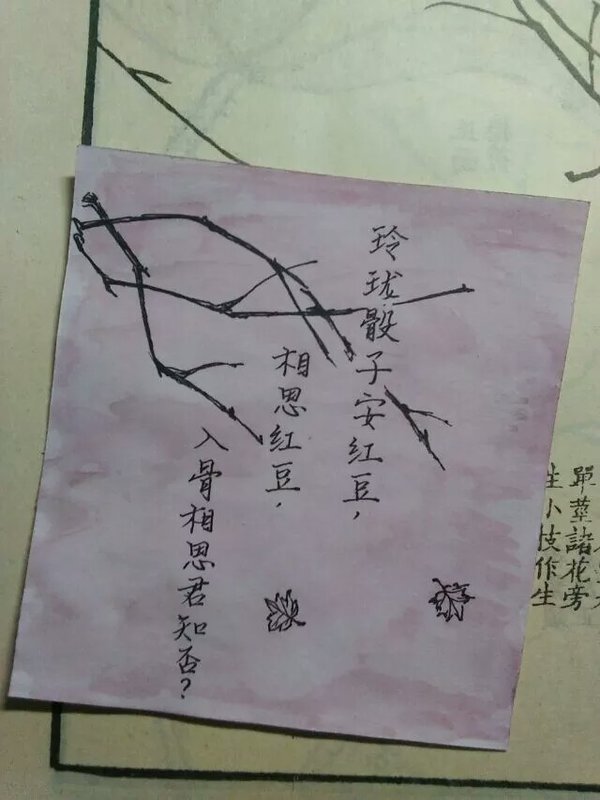 玲珑骰子安红豆，
相思红豆，
入骨相思君知否？
單莖諸花旁
生小枝作生